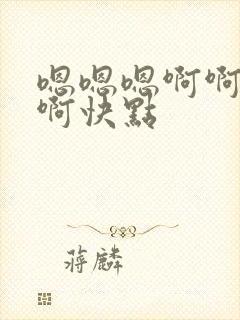 嗯嗯嗯啊啊
啊快點
蔣麟